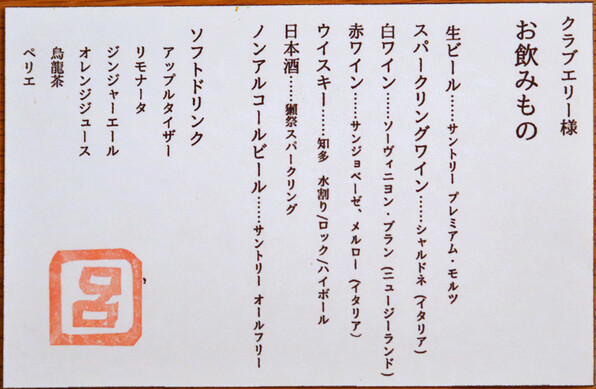 クラブエリー様
お飲みもの
生ビール……サントリー プレミアム・モルツ
スパークリングワイン……シャルドネ (イタリア)
白ワイン……ソーヴィニヨン・ブラン (ニュージーランド)
赤ワイン……サンジョベーゼ、メルロー (イタリア)
ウイスキー……知多 水割り/ロック/ハイボール
日本酒……獺祭スパークリング
ノンアルコールビール……サントリー オールフリー
ソフトドリンク
アップルタイザー
リモナータ
ジンジャーエール
オレンジジュース
烏龍茶
ペリエ
呂